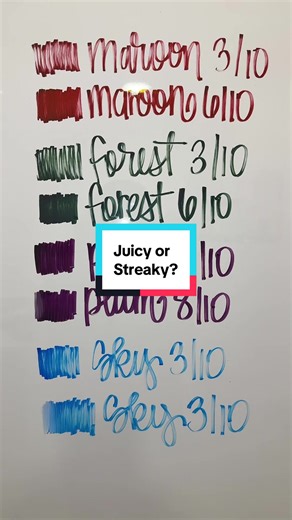 maroon 3/10
maroon 6/10
forest 3/10
forest 6/10
Juicy or
Streaky?
/10
plum 8/10
Sky 3/10
Sky 3/10